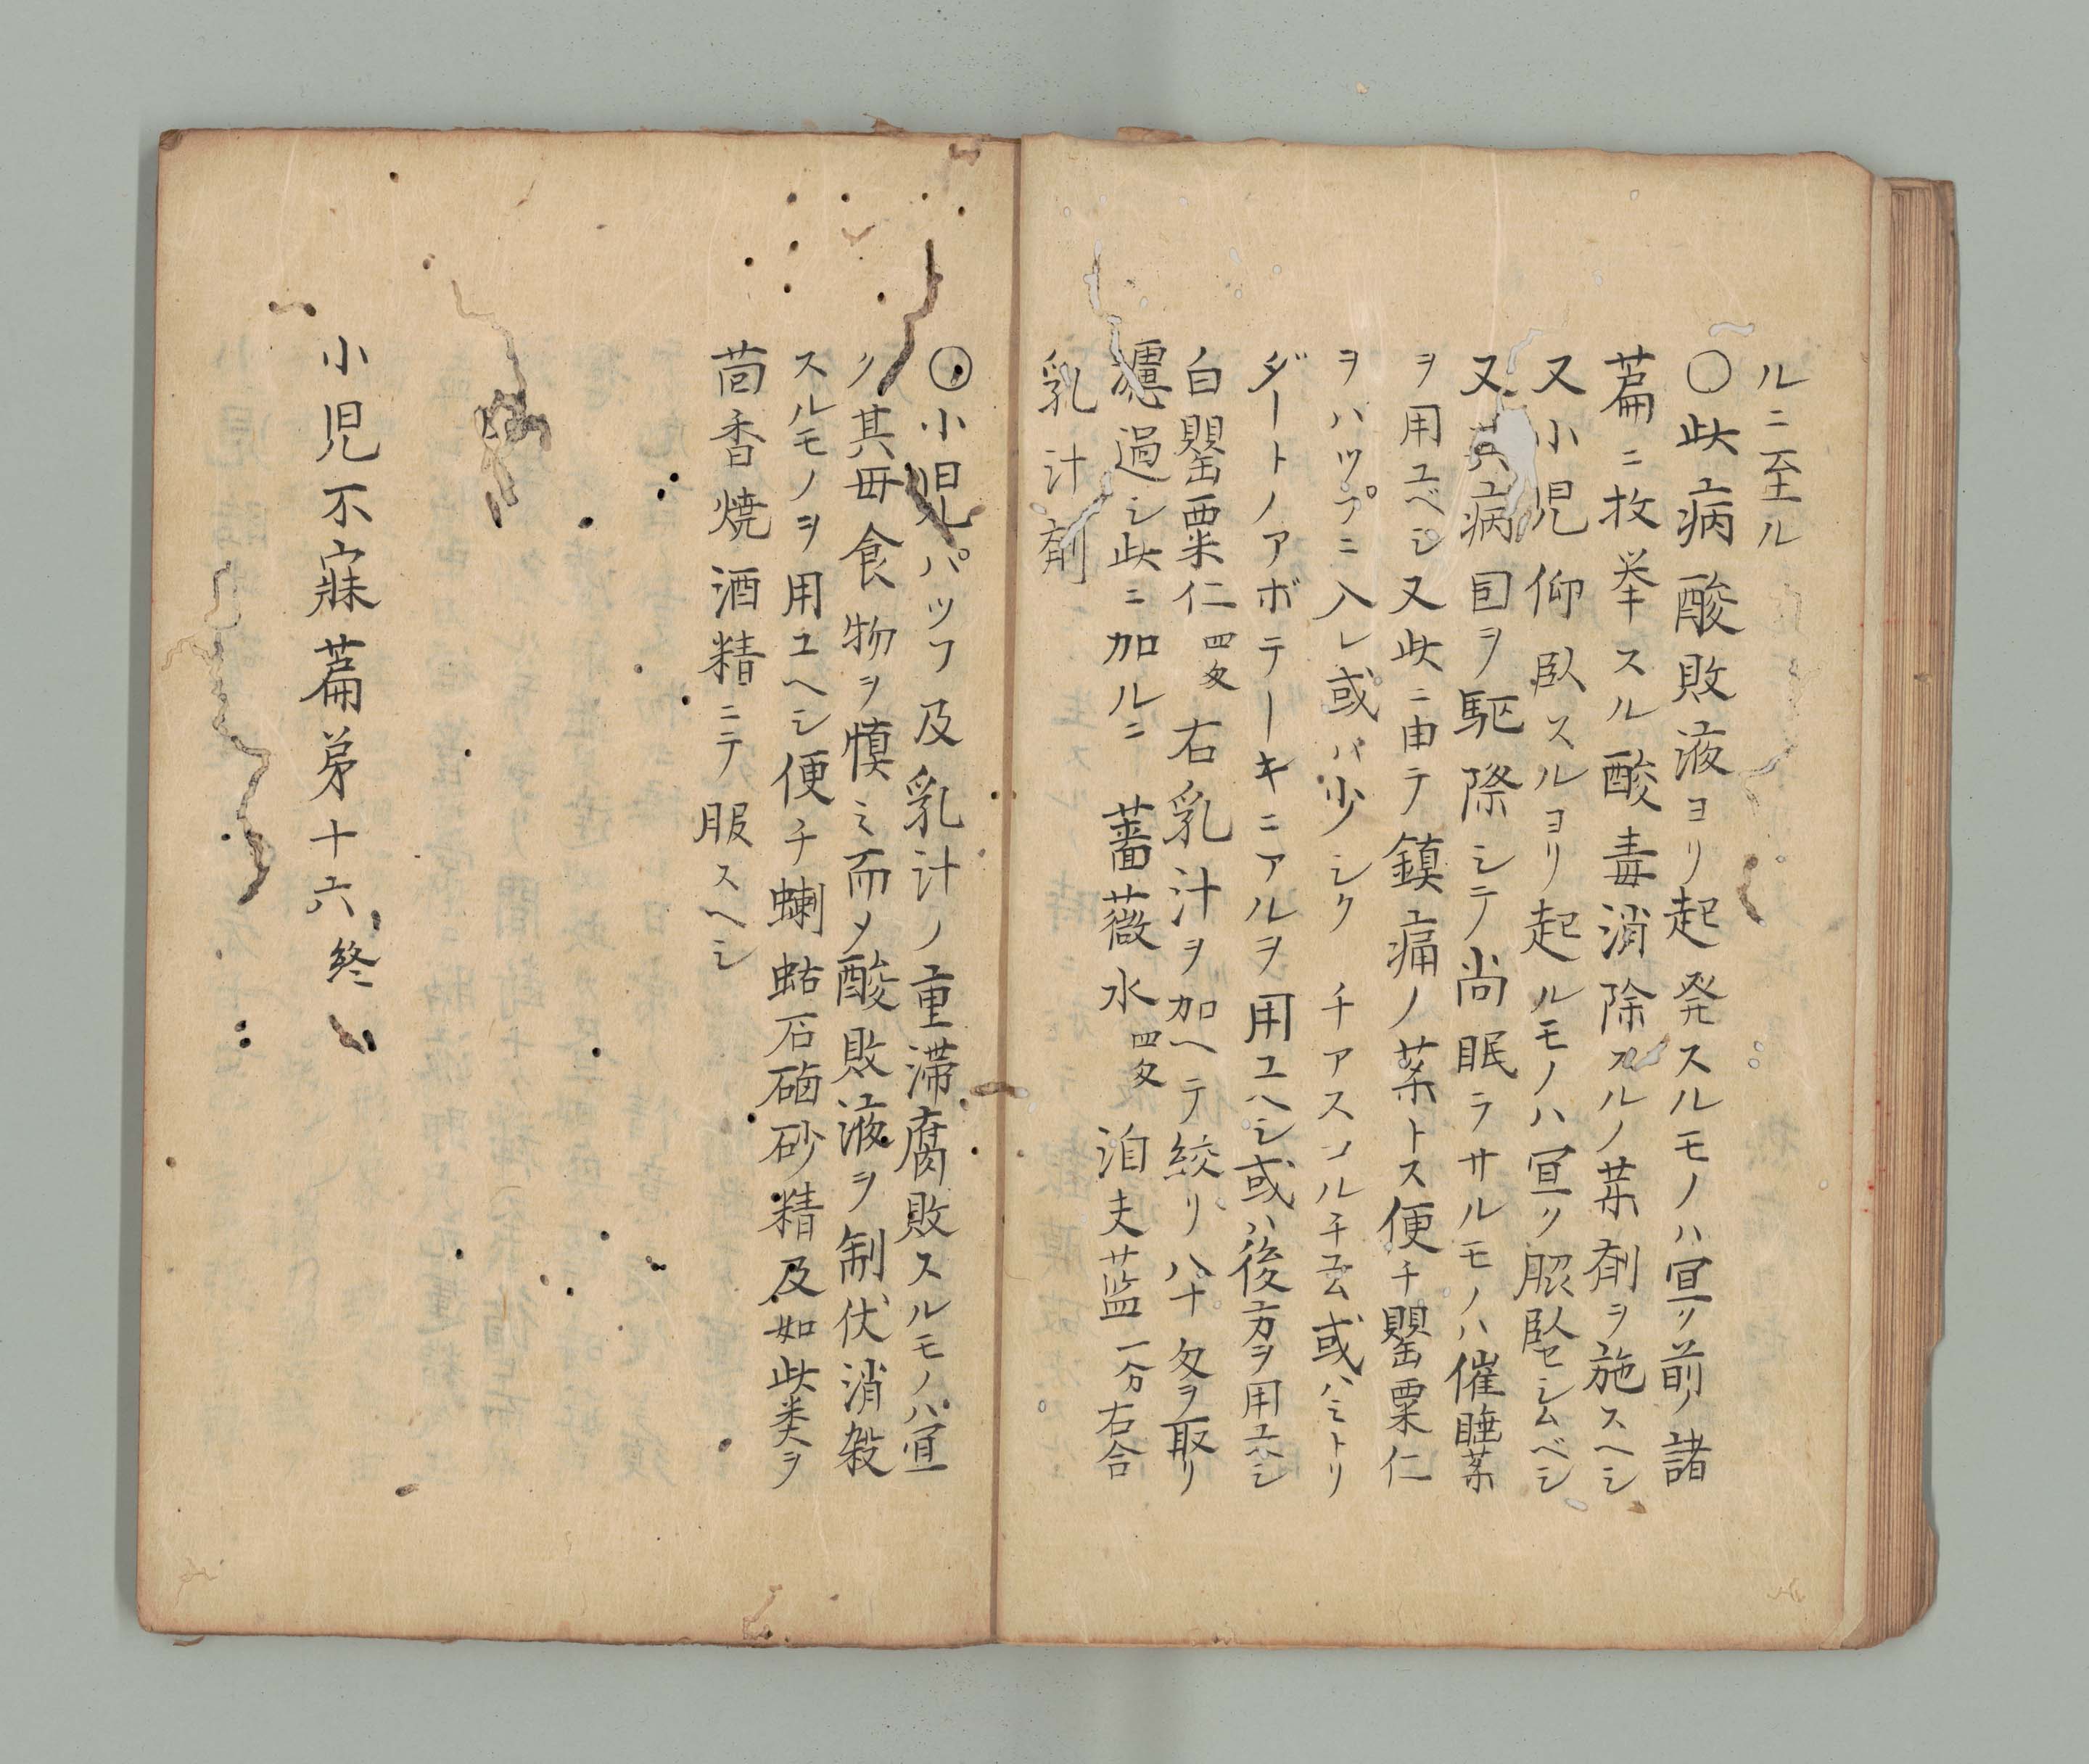 ルニ至ル
〇此病酸敗液ヨリ起発スルモノハ宜ク前ノ諸
篇ニ枚挙スル酸毒消除スルノ薬剤ヲ施スヘシ
又小児仰臥スルヨリ起ルモノハ宜ク臥セシムベシ
又其病因ヲ駆除シテ尚眠ラサルモノハ催睡薬
ヲ用ユベシ又此ニ由テ鎮痛ノ薬トス便チ罌粟仁
ヲハツプニ入レ或ハ少シク チアスコルチユム或ハミトリ
ダートノアボテーキニアルヲ用ユヘシ或ハ後方ヲ用ユヘシ
白罌粟仁四匁 右乳汁ヲ加ヘテ絞リ八十匁ヲ取リ
濾過シ此ニ加ルニ 薔薇水四匁 泊夫藍一分右合
乳汁剤
〇小児パツフ及乳汁ノ重滞腐敗スルモノハ宜
ク其母食物ヲ慎ミ而メ酸敗液ヲ制伏消殺
スルモノヲ用ユヘシ便チ蝲蛄石硇砂精及如此类ヲ
茴香焼酒精ニテ服スヘシ
小児不寐篇第十六終